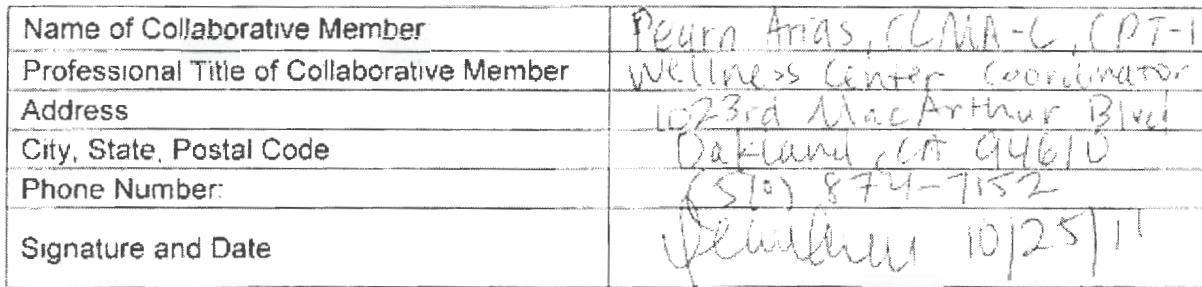 Name of Collaborative Member Pearn Arias, CCMA-C, CPT-1
Professional Title of Collaborative Member Wellness Center Coordinator
Address 1023rd MacArthur Blvd
City, State, Postal Code Oakland, CA 94610
Phone Number: (510) 874-7152
Signature and Date 10/25/11